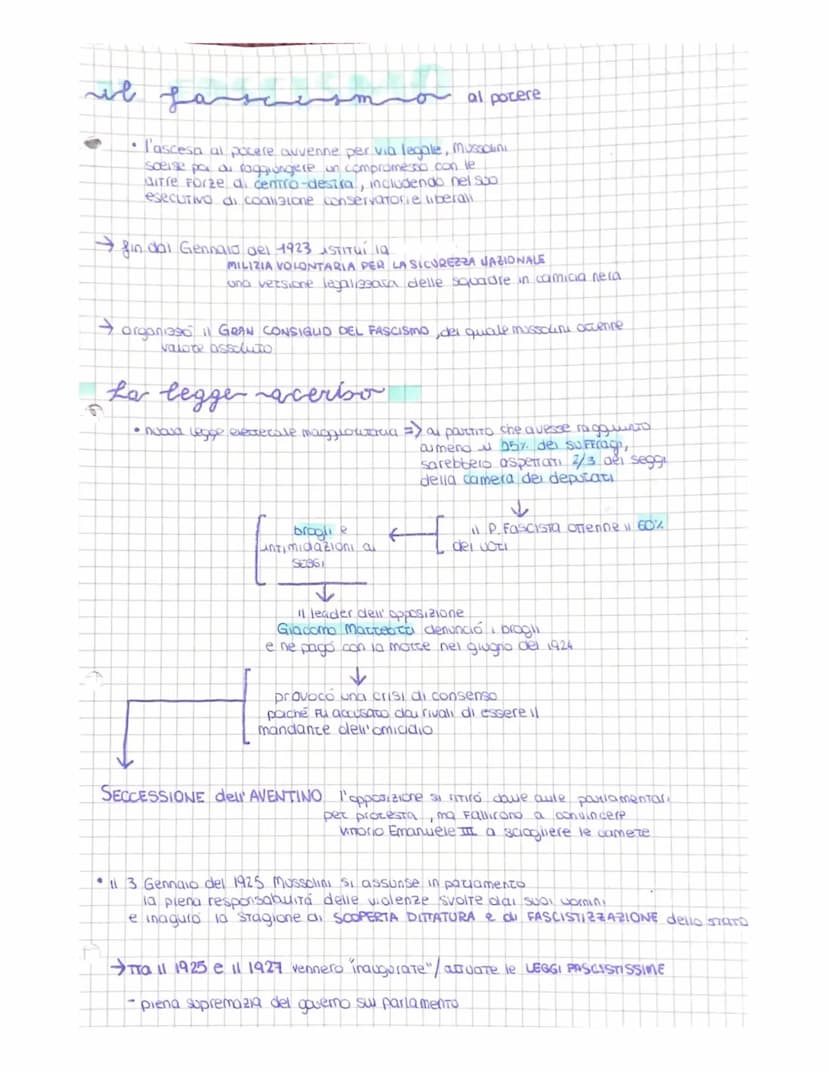 il fascismo al potere
• l'ascesa al potere avvenne per via legale, Mussolini
scelse poi di raggiungere un compromesso con le
altre forze di centro-destra, includendo nel suo
esecutivo di coalizione conservatori e liberali
→ fin dal Gennaio del 1923 istituí la
MILIZIA VOLONTARIA PER LA SICUREZZA NAZIONALE
una versione legalizzata delle squadre in camicia nera
→ organizzó il GRAN CONSIGLIO DEL FASCISMO, del quale mussolini ottenne
valore assoluto
La legge acerbo
• nuova legge elettorale maggioritaria => al partito che avesse raggiunto
almeno il 25% dei suffragi,
sarebbero aspettati 2/3 dei seggi
della camera dei deputati
↓
il P. Fascista ottenne il 60%
dei voti
←
brogli e
intimidazioni ai
seggi
↓
il leader dell'opposizione
Giacomo Matteotti denunció i brogli
e ne pagó con la morte nel giugno del 1924
↓
provocó una crisi di consenso
poiché fu accusato dai rivali di essere il
mandante dell'omicidio
SECCESSIONE dell'AVENTINO l'opposizione si ritiró dalle aule parlamentari
per protesta, ma fallirono a convincere
Vittorio Emanuele III a sciogliere le camere
• il 3 Gennaio del 1925 Mussolini si assunse in parlamento
la piena responsabilitá delle violenze svolte dai suoi uomini
e inaguró la stagione di SCOPERTA DITTATURA e di FASCISTIZZAZIONE dello stato
→ tra il 1925 e il 1927 vennero "inaugurate"/attuate le LEGGI FASCISTISSIME
- piena supremazia del governo sul parlamento